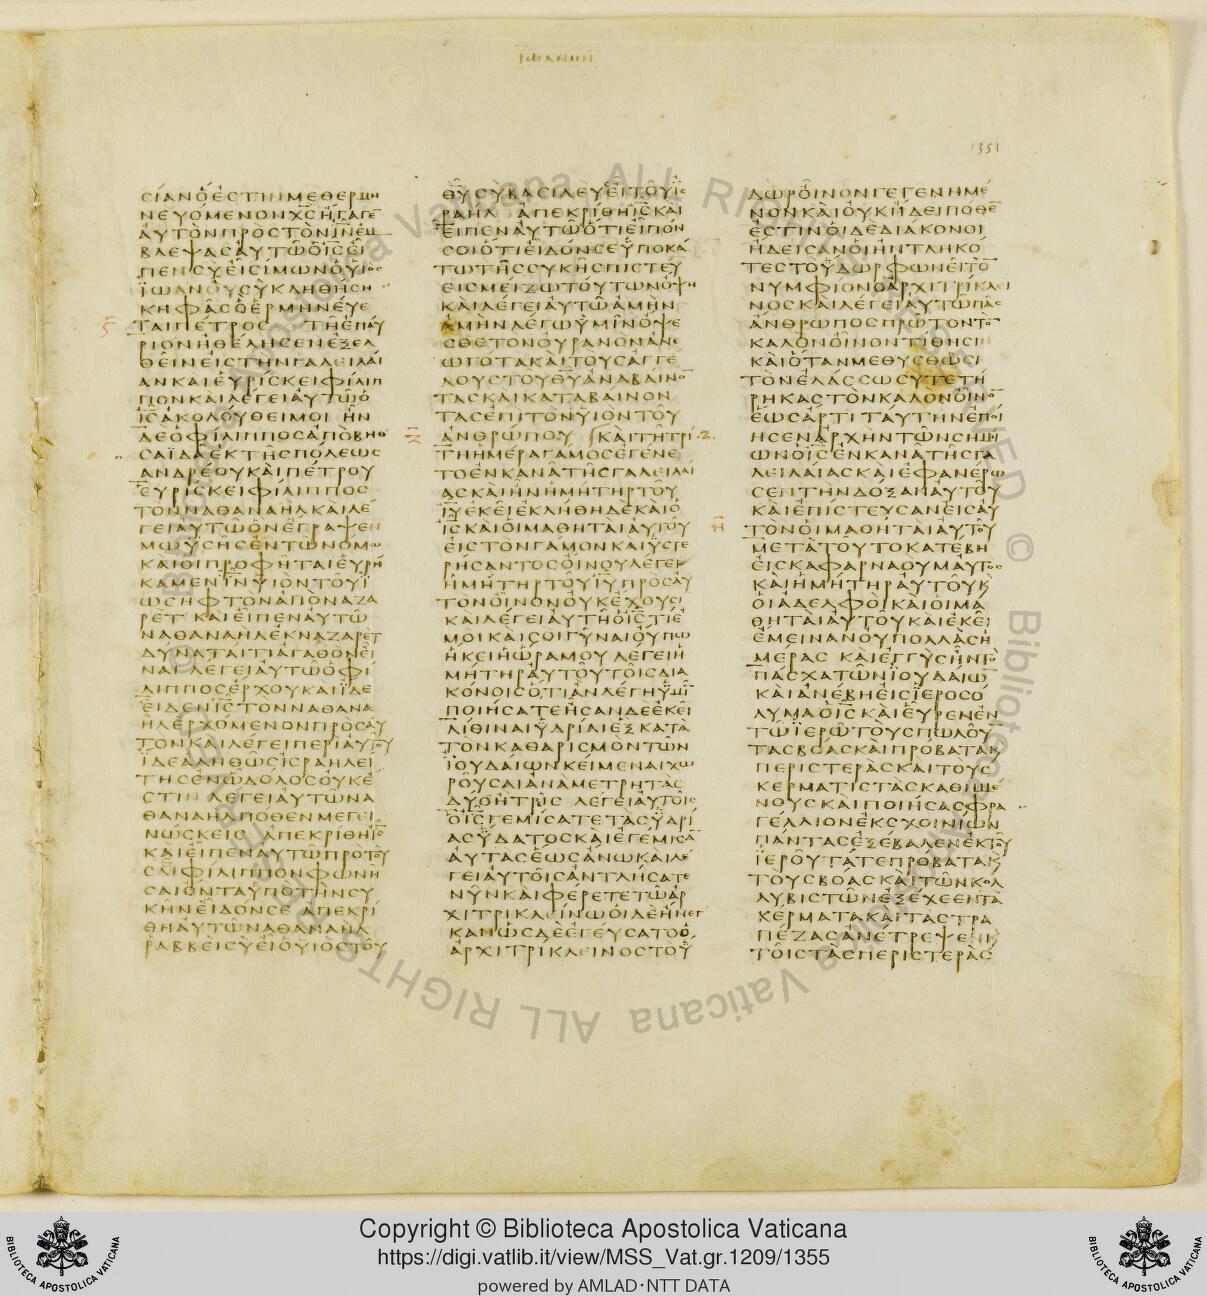 ΙΩΑΝΗΝ
1351
ΣΙΑΝΟΕΣΤΙΝΜΕΘΕΡΜΗ
ΝΕΥΟΜΕΝΟΝΧΣΗΓΑΓΕ
ΑΥΤΟΝΠΡΟΣΤΟΝΙΝΕΜ
ΒΛΕΨΑΣΑΥΤΩΟΙΣΕΙ
ΠΕΝΣΥΕΙΣΙΜΩΝΟΥΙΟΣ
ΙΩΑΝΟΥΣΥΚΛΗΘΗΣΗ
ΚΗΦΑΣΟΕΡΜΗΝΕΥΕ
ΤΑΙΠΕΤΡΟΣ ΤΗΕΠΑΥ
ΡΙΟΝΗΘΕΛΗΣΕΝΕΞΕΛ
ΘΕΙΝΕΙΣΤΗΝΓΑΛΕΙΛΑΙ
ΑΝΚΑΙΕΥΡΙΣΚΕΙΦΙΛΙΠ
ΠΟΝΚΑΙΛΕΓΕΙΑΥΤΩΟ
ΙΣΑΚΟΛΟΥΘΕΙΜΟΙ ΗΝ
ΔΕΟΦΙΛΙΠΠΟΣΑΠΟΒΗΘ
ΣΑΙΔΑΕΚΤΗΣΠΟΛΕΩΣ
ΑΝΔΡΕΟΥΚΑΙΠΕΤΡΟΥ
ΕΥΡΙΣΚΕΙΦΙΛΙΠΠΟΣ
ΤΟΝΝΑΘΑΝΑΗΛΚΑΙΛΕ
ΓΕΙΑΥΤΩΟΝΕΓΡΑΨΕΝ
ΜΩΥΣΗΣΕΝΤΩΝΟΜΩ
ΚΑΙΟΙΠΡΟΦΗΤΑΙΕΥΡΗ
ΚΑΜΕΝΙΝΥΙΟΝΤΟΥΙ
ΩΣΗΦΤΟΝΑΠΟΝΑΖΑ
ΡΕΤ ΚΑΙΕΙΠΕΝΑΥΤΩ
ΝΑΘΑΝΑΗΛΕΚΝΑΖΑΡΕΤ
ΔΥΝΑΤΑΙΤΙΑΓΑΘΟΝΕΙ
ΝΑΙ ΛΕΓΕΙΑΥΤΩΟΦΙ
ΛΙΠΠΟΣΕΡΧΟΥΚΑΙΙΔΕ
ΕΙΔΕΝΙΣΤΟΝΝΑΘΑΝΑ
ΗΛΕΡΧΟΜΕΝΟΝΠΡΟΣΑΥ
ΤΟΝΚΑΙΛΕΓΕΙΠΕΡΙΑΥΤΟΥ
ΙΔΕΑΛΗΘΩΣΙΣΡΑΗΛΕΙ
ΤΗΣΕΝΩΔΟΛΟΣΟΥΚΕ
ΣΤΙΝ ΛΕΓΕΙΑΥΤΩΝΑ
ΘΑΝΑΗΛΠΟΘΕΝΜΕΓΕΙ
ΝΩΣΚΕΙΣ ΑΠΕΚΡΙΘΗΙΣ
ΚΑΙΕΙΠΕΝΑΥΤΩΠΡΟΤΟΥ
ΣΕΦΙΛΙΠΠΟΝΦΩΝΗ
ΣΑΙΟΝΤΑΥΠΟΤΗΝΣΥ
ΚΗΝΕΙΔΟΝΣΕ ΑΠΕΚΡΙ
ΘΗΑΥΤΩΝΑΘΑΝΑΗΛ
ΡΑΒΒΕΙΣΥΕΙΟΥΙΟΣΤΟΥ
ΘΥΣΥΒΑΣΙΛΕΥΣΕΙΤΟΥΙΣ
ΡΑΗΛ ΑΠΕΚΡΙΘΗΙΣΚΑΙ
ΕΙΠΕΝΑΥΤΩΟΤΙΕΙΠΟΝ
ΣΟΙΟΤΙΕΙΔΟΝΣΕΥΠΟΚΑ
ΤΩΤΗΣΣΥΚΗΣΠΙΣΤΕΥ
ΕΙΣΜΕΙΖΩΤΟΥΤΩΝΟΨΗ
ΚΑΙΛΕΓΕΙΑΥΤΩΑΜΗΝ
ΑΜΗΝΛΕΓΩΥΜΙΝΟΨΕ
ΣΘΕΤΟΝΟΥΡΑΝΟΝΑΝΕ
ΩΓΟΤΑΚΑΙΤΟΥΣΑΓΓΕ
ΛΟΥΣΤΟΥΘΥΑΝΑΒΑΙΝΟ
ΤΑΣΚΑΙΚΑΤΑΒΑΙΝΟΝ
ΤΑΣΕΠΙΤΟΝΥΙΟΝΤΟΥ
ΑΝΘΡΩΠΟΥ ΚΑΙΤΗΤΡΙ
ΤΗΗΜΕΡΑΓΑΜΟΣΕΓΕΝΕ
ΤΟΕΝΚΑΝΑΤΗΣΓΑΛΕΙΛΑΙ
ΑΣΚΑΙΗΝΗΜΗΤΗΡΤΟΥ
ΙΥΕΚΕΙΕΚΛΗΘΗΔΕΚΑΙΟ
ΙΣΚΑΙΟΙΜΑΘΗΤΑΙΑΥΤΟΥ
ΕΙΣΤΟΝΓΑΜΟΝΚΑΙΥΣΤΕ
ΡΗΣΑΝΤΟΣΟΙΝΟΥΛΕΓΕΙ
ΗΜΗΤΗΡΤΟΥΙΥΠΡΟΣΑΥ
ΤΟΝΟΙΝΟΝΟΥΚΕΧΟΥΣΙ
ΚΑΙΛΕΓΕΙΑΥΤΗΟΙΣΤΙΕ
ΜΟΙΚΑΙΣΟΙΓΥΝΑΙΟΥΠΩ
ΗΚΕΙΗΩΡΑΜΟΥ ΛΕΓΕΙΗ
ΜΗΤΗΡΑΥΤΟΥΤΟΙΣΔΙΑ
ΚΟΝΟΙΣΟΤΙΑΝΛΕΓΗΥΜΙ
ΠΟΙΗΣΑΤΕΗΣΑΝΔΕΕΚΕΙ
ΛΙΘΙΝΑΙΥΔΡΙΑΙΕΞΚΑΤΑ
ΤΟΝΚΑΘΑΡΙΣΜΟΝΤΩΝ
ΙΟΥΔΑΙΩΝΚΕΙΜΕΝΑΙΧΩ
ΡΟΥΣΑΙΑΝΑΜΕΤΡΗΤΑΣ
ΔΥΟΗΤΡΙΣ ΛΕΓΕΙΑΥΤΟΙΣ
ΟΙΣΓΕΜΙΣΑΤΕΤΑΣΥΔΡΙ
ΑΣΥΔΑΤΟΣΚΑΙΕΓΕΜΙΣΑ
ΑΥΤΑΣΕΩΣΑΝΩΚΑΙΛΕ
ΓΕΙΑΥΤΟΙΣΑΝΤΛΗΣΑΤΕ
ΝΥΝΚΑΙΦΕΡΕΤΕΤΩΑΡ
ΧΙΤΡΙΚΛΕΙΝΩΟΙΔΕΗΝΕΓ
ΚΑΝΩΣΔΕΕΓΕΥΣΑΤΟΟ
ΑΡΧΙΤΡΙΚΛΕΙΝΟΣΤΟΥ
ΔΩΡΟΙΝΟΝΓΕΓΕΝΗΜΕ
ΝΟΝΚΑΙΟΥΚΗΔΕΙΠΟΘΕ
ΕΣΤΙΝΟΙΔΕΔΙΑΚΟΝΟΙ
ΗΔΕΙΣΑΝΟΙΗΝΤΛΗΚΟ
ΤΕΣΤΟΥΔΩΡΦΩΝΕΙΤΟ
ΝΥΜΦΙΟΝΟΑΡΧΙΤΡΙΚΛΕΙ
ΝΟΣΚΑΙΛΕΓΕΙΑΥΤΩΠΑΣ
ΑΝΘΡΩΠΟΣΠΡΩΤΟΝΤΟ
ΚΑΛΟΝΟΙΝΟΝΤΙΘΗΣΙ
ΚΑΙΟΤΑΝΜΕΘΥΣΘΩΣΙ
ΤΟΝΕΛΑΣΣΩΣΥΤΕΤΗ
ΡΗΚΑΣΤΟΝΚΑΛΟΝΟΙΝΟ
ΕΩΣΑΡΤΙ ΤΑΥΤΗΝΕΠΟΙ
ΗΣΕΝΑΡΧΗΝΤΩΝΣΗΜΕΙ
ΩΝΟΙΣΕΝΚΑΝΑΤΗΣΓΑ
ΛΕΙΛΑΙΑΣΚΑΙΕΦΑΝΕΡΩ
ΣΕΝΤΗΝΔΟΞΑΝΑΥΤΟΥ
ΚΑΙΕΠΙΣΤΕΥΣΑΝΕΙΣΑΥ
ΤΟΝΟΙΜΑΘΗΤΑΙΑΥΤΟΥ
ΜΕΤΑΤΟΥΤΟΚΑΤΕΒΗ
ΕΙΣΚΑΦΑΡΝΑΟΥΜΑΥΤΟΣ
ΚΑΙΗΜΗΤΗΡΑΥΤΟΥΚ
ΟΙΑΔΕΛΦΟΙΚΑΙΟΙΜΑ
ΘΗΤΑΙΑΥΤΟΥΚΑΙΕΚΕΙ
ΕΜΕΙΝΑΝΟΥΠΟΛΛΑΣΗ
ΜΕΡΑΣ ΚΑΙΕΓΓΥΣΗΝΤΟ
ΠΑΣΧΑΤΩΝΙΟΥΔΑΙΩ
ΚΑΙΑΝΕΒΗΕΙΣΙΕΡΟΣΟ
ΛΥΜΑΟΙΣΚΑΙΕΥΡΕΝΕΝ
ΤΩΙΕΡΩΤΟΥΣΠΩΛΟΥ
ΤΑΣΒΟΑΣΚΑΙΠΡΟΒΑΤΑΚ
ΠΕΡΙΣΤΕΡΑΣΚΑΙΤΟΥΣ
ΚΕΡΜΑΤΙΣΤΑΣΚΑΘΗΜΕ
ΝΟΥΣΚΑΙΠΟΙΗΣΑΣΦΡΑ
ΓΕΛΛΙΟΝΕΚΣΧΟΙΝΙΩΝ
ΠΑΝΤΑΣΕΞΕΒΑΛΕΝΕΚΤΟΥ
ΙΕΡΟΥΤΑΤΕΠΡΟΒΑΤΑΚ
ΤΟΥΣΒΟΑΣΚΑΙΤΩΝΚΟΛ
ΛΥΒΙΣΤΩΝΕΞΕΧΕΕΝΤΑ
ΚΕΡΜΑΤΑΚΑΙΤΑΣΤΡΑ
ΠΕΖΑΣΑΝΕΤΡΕΨΕΝΚ
ΤΟΙΣΤΑΣΠΕΡΙΣΤΕΡΑΣ
Copyright © Biblioteca Apostolica Vaticana
https://digi.vatlib.it/view/MSS_Vat.gr.1209/1355
powered by AMLAD·NTT DATA
BIBLIOTECA APOSTOLICA VATICANA
BIBLIOTECA APOSTOLICA VATICANA